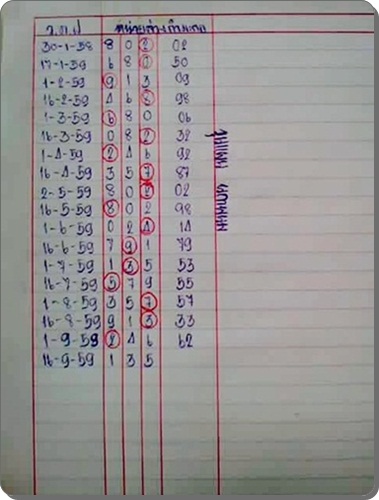 ว.ด.ป
30-1-59 8 0 2 02
17-1-59 6 8 0 50
1-2-59 9 1 3 09
16-2-59 4 6 8 98
1-3-59 6 8 0 06
16-3-59 0 8 2 32
1-4-59 2 4 6 92
16-4-59 3 5 7 87
2-5-59 8 0 2 02
16-5-59 8 0 2 98
1-6-59 0 2 4 14
16-6-59 7 9 1 79
1-7-59 1 3 5 53
16-7-59 5 7 9 55
1-8-59 3 5 7 57
16-8-59 9 1 3 33
1-9-59 2 4 6 62
16-9-59 1 3 5